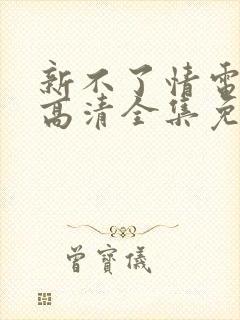 新不了情雷
高清全集免
曾寶儀